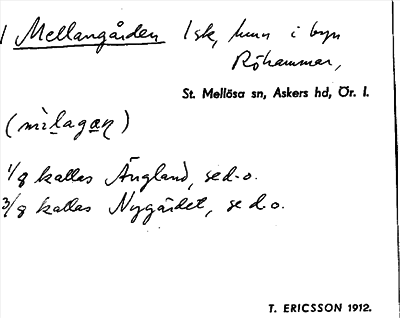 1 Mellangården 1 sk, hmn i byn
Röhammar,
St. Mellösa sn, Askers hd, Ör. l.
(mìlagaɳ)
1/8 kallas Ängland, se d.o.
3/8 kallas Nygärdet, se d.o.
T. ERICSSON 1912.